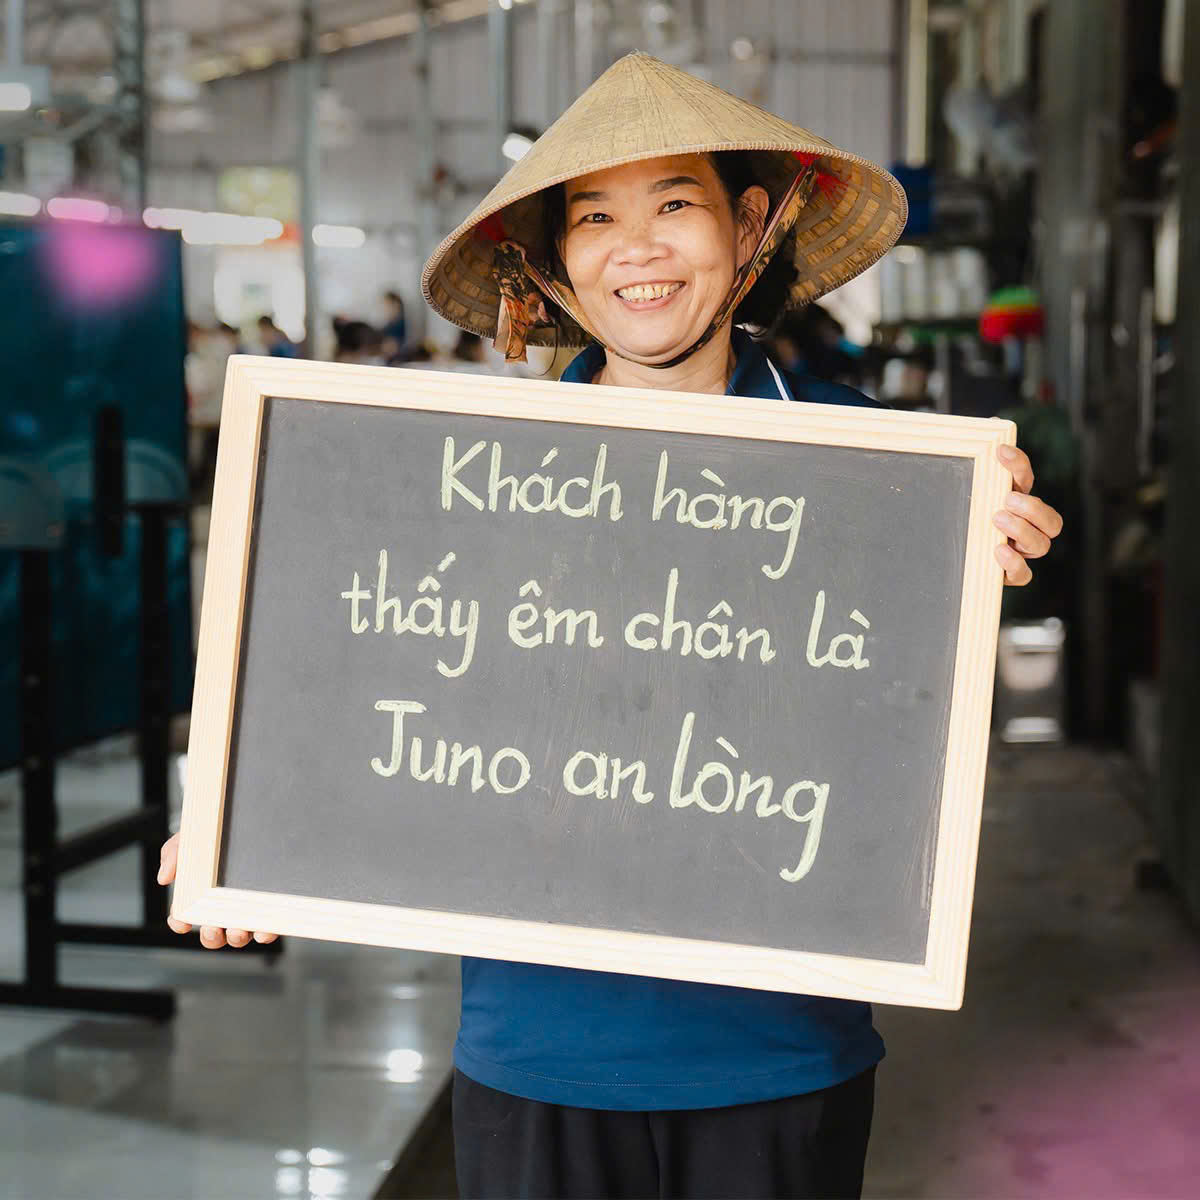 Khách hàng
thấy êm chân là
Juno an lòng